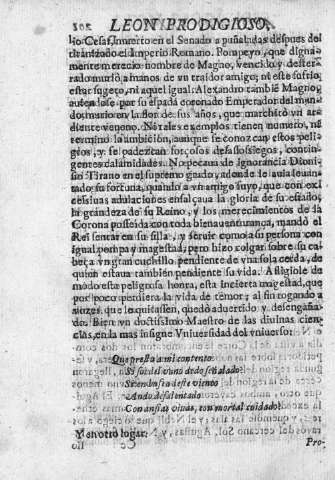 LEON PRODIGIOSO,
lio Cesar, muerto en el Senado a puñaladas despues del
tiranizado el Imperio Romano. Pompeyo, que digna-
mente merecio nombre de Magno, vencido y dester-
rado murio a manos de vn traidor amigo; ni este sufrio
estar sugeto, ni aquel igual. Alexandro tambiẽ Magno,
auiendose por su espada coronado Emperador del mun-
do, murio en la flor de sus años, que marchitò vn ar-
diente veneno. No tales exemplos tienen numero, ni
termino la ambicion, aunque se conozcan estos peli-
gros, y se padezcan forçosos desassossiegos, contin-
gentes calamidades. No pecaua de ignorancia Dioni-
sio Tirano en el supremo grado, adonde le auia leuan-
tado su fortuna, quando a vn amigo suyo, que con ex-
cessiuas adulaciones ensalçaua la gloria de su estado,
la grandeza de su Reino, y los merecimientos de la
Corona posseida con toda bienauenturança, mandò el
Rei sentar en su silla, y seruir como a su persona con
igual pompa y magestad, pero hizo colgar sobre su ca-
beça vn gran cuchillo pendiente de vna sola cerda, de
quien estaua tambien pendiente su vida. Afligiole de
modo este peligrosa honra, esta incierta magestad, que
por poco perdiera la vida de temor; al fin rogando a
vozes que le quitassen, quedò aduertido, y desengaña-
do. Bien vn doctissimo Maestro de las diuinas cien-
cias, en la mas insigne Vniuersidad del vniuerso:
Que presta a mi contento
Si soi del vano dedo señalado
Si en busca deste viento
Ando desalentado
Con ansias viuas, con mortal cuidado?
Y en otro lugar.
Pro-